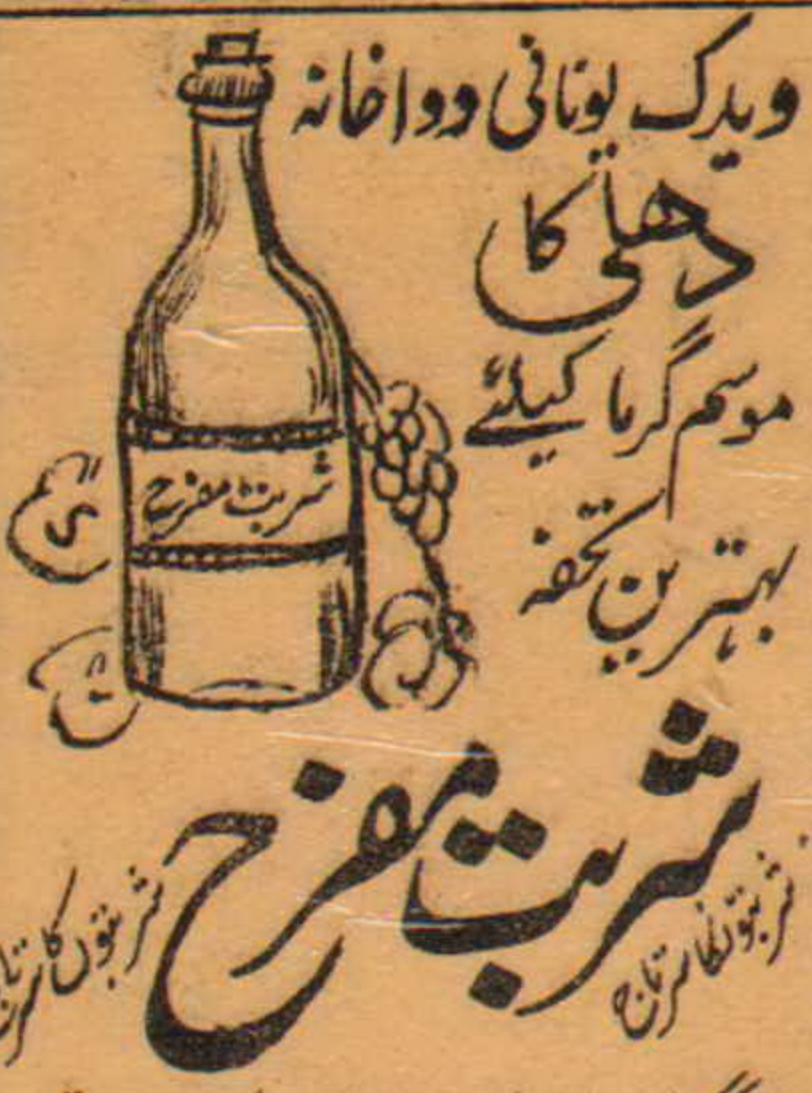 ویدک یونانی دواخانہ
دھلی کا
موسم گرما کیلئے
بہترین تحفہ
شربت مفرح
شربت مفرح
شربتوں کا سرتاج
شربتوں کا سرتاج